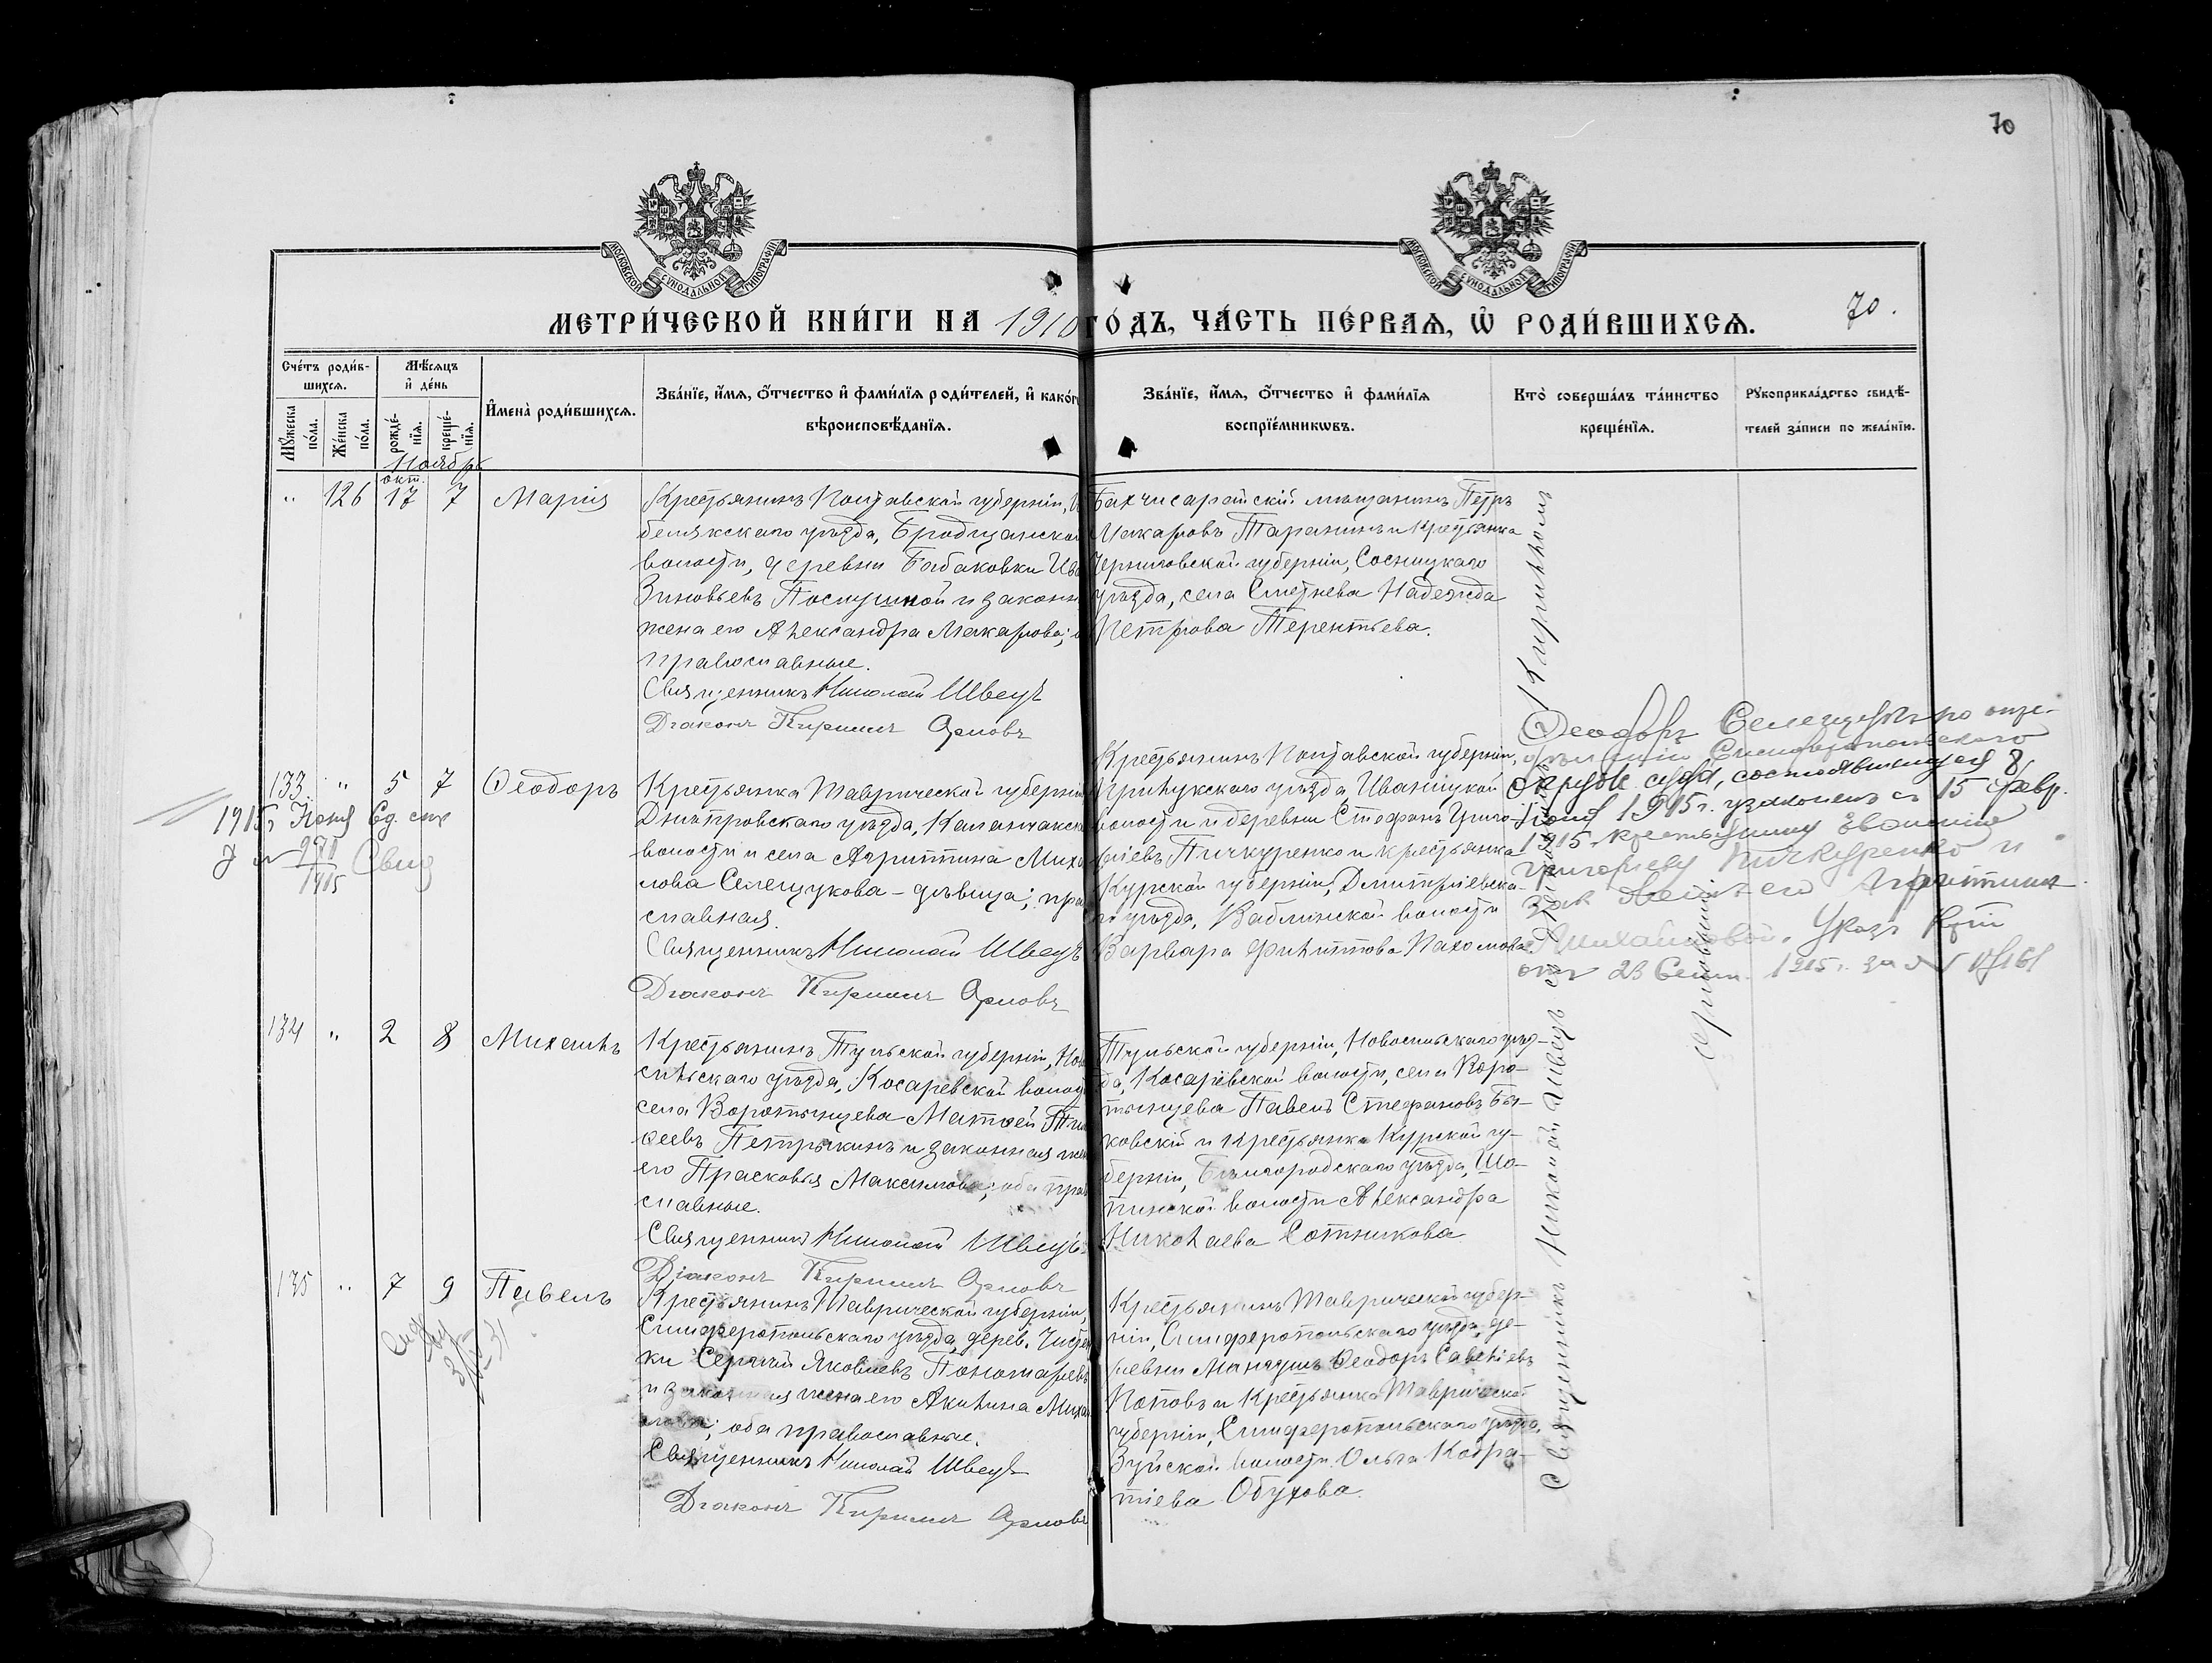 70
МОСКОВСКОЙ СУНОДАЛЬНОЙ ТИПОГРАФІИ
МОСКОВСКОЙ СУНОДАЛЬНОЙ ТИПОГРАФІИ
МЕТРИ́ЧЕСКОЙ КНИ́ГИ НА 1910 ГО́ДЪ, ЧА́СТЬ ПЕ́РВАѦ, Ѡ҆ РОДИ́ВШИХСѦ. 70.
Сче́тъ роди́в-
шихсѧ.
Мꙋ́жеска по́ла.
Же́нска по́ла.
Мѣ́сѧцъ
и҆ де́нь
рожде́-
нїѧ.
креще́-
нїѧ.
И҆мена̀ роди́вшихсѧ.
Зва́нїе, и҆́мѧ, ѻ҆́тчество и҆ фами́лїѧ роди́телей, и҆ како́г
вѣроисповѣ́данїѧ.
Зва́нїе, и҆́мѧ, ѻ҆́тчество и҆ фами́лїѧ
воспрїе́мникѡвъ.
Кто̀ соверша́лъ та́инство
креще́нїѧ.
Рꙋкоприкла́дство свидѣ́-
телей за́писи по жела́нїю.
Ноябрь
окт.
" 126 17 7 Марія
Крестьянинъ Полтавской губерніи,
белякского уѣзда, Бродщанской
волости, деревни Бабаковки Ива
Зиновьевъ Послушной и законн
жена его Александра Макарова;
православные.
Священникъ Николай Швецъ
Діаконъ Кириллъ Орловъ
Бахчисарайскій мѣщанинъ Петръ
Макаровъ Таранинъ и крестьянка
Черниговской губерніи, Сосницкаго
уѣзда, села Сметнева Надежда
Петрова Терентьева.
133 " 5 7 Ѳеодоръ
1915
970
1915
Свид
Крестьянка Таврической губерніи
Днѣпровскаго уѣзда, Каланчакск
волости и села Агриппина Миха
лова Селещукова - дѣвица; пра
славная.
Священникъ Николай Швецъ
Діаконъ Кириллъ Орловъ
Крестьянинъ Полтавской губерніи,
Прилукскаго уѣзда Иваницкой
волости и деревни Стефанъ Григо-
ріевъ Пичкуренко и крестьянка
Курской губерніи, Дмитріевска-
го уѣзда, Ваблинской волости
Варвара Филиппова Пахомова
Ѳеодоръ Селещукъ по опре-
дѣленію Симферопольскаго
окружн. суда, состоявшемуся 8
1915 г. узаконенъ съ 15 февр.
1915 крестьянину
Григорьеву Пичкуренко и
зак женѣ его Агриппинѣ
Михайловой. Указъ
отъ 23 Сент. 1915 г. за №
134 " 2 8 Михаилъ
Крестьянинъ Тульской губерніи, Ново
сильскаго уѣзда, Косаревской волост
села Воротынцева Матѳей Тим
ѳеевъ Петрыкинъ и законная же
его Прасковья Максимова; оба прав
славные.
Священникъ Николай Швецъ
Діаконъ Кириллъ Орловъ
Тульской губерніи, Новосильскаго уѣз-
да, Косаревской волости, села Воро-
тынцева Павелъ Стефановъ Бы-
ковскій и крестьянка Курской гу-
берніи, Бѣлгородскаго уѣзда, Шо-
пинской волости Александра
Николаева Сотникова
135 " 7 9 Павелъ
Крестьянинъ Таврической губерніи,
Симферопольскаго уѣзда, дерев. Чистень
ки Сергѣй Яковлевъ Пономаревъ
и законная жена его Акилина Миха
лова; оба православные.
Священникъ Николай Швецъ
Діаконъ Кириллъ Орловъ
Крестьянинъ Таврической губер-
ніи, Симферопольскаго уѣзда, де-
ревни Мангушъ Ѳеодоръ Савеліевъ
Поповъ и крестьянка Таврической
губерніи, Симферопольскаго уѣзда,
Зуйской волости Ольга Кодра-
тіева Обухова.
Священникъ Николай Швецъ съ діакономъ Кирилломъ
Орловымъ